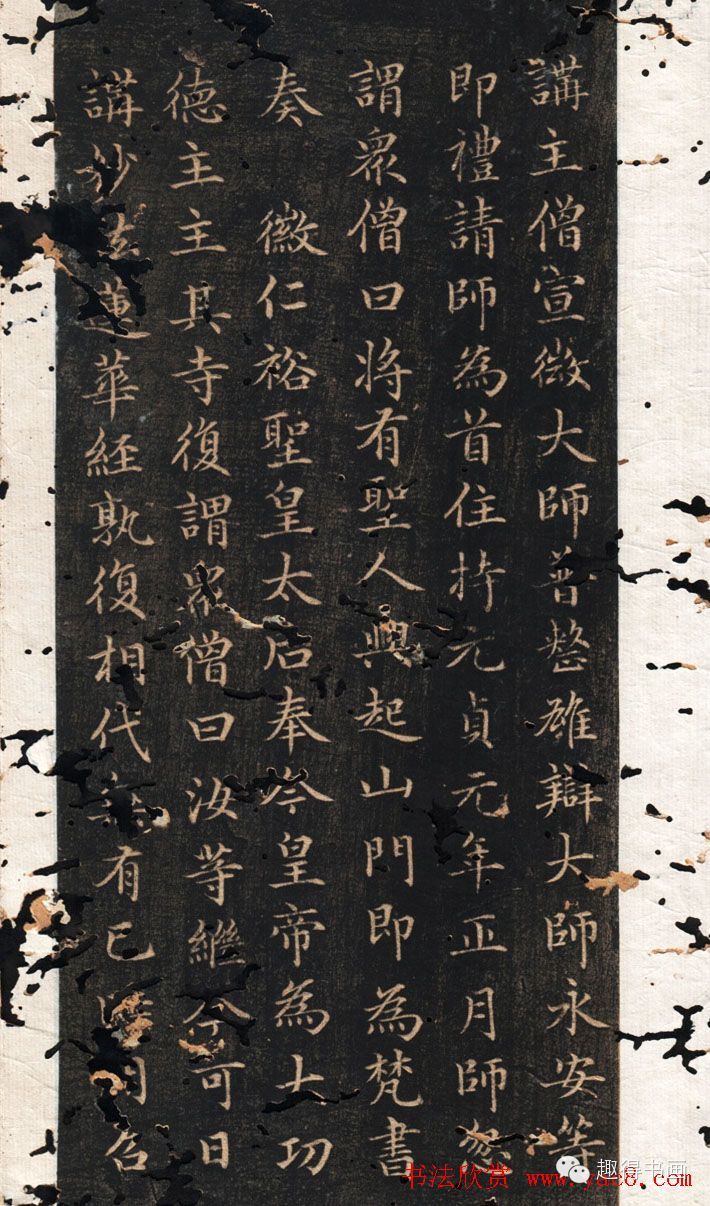 講主僧宣微大師普整雄辯大師永安等
即禮請師為首住持元貞元年正月師忽
謂眾僧曰將有聖人興起山門即為梵書
奏 徽仁裕聖皇太后奉今皇帝為大功
德主主其寺復謂眾僧曰汝等繼今可日
講妙法蓮華經孰復相代無有已時用召
书法欣赏 www.yac8.com
趣得书画